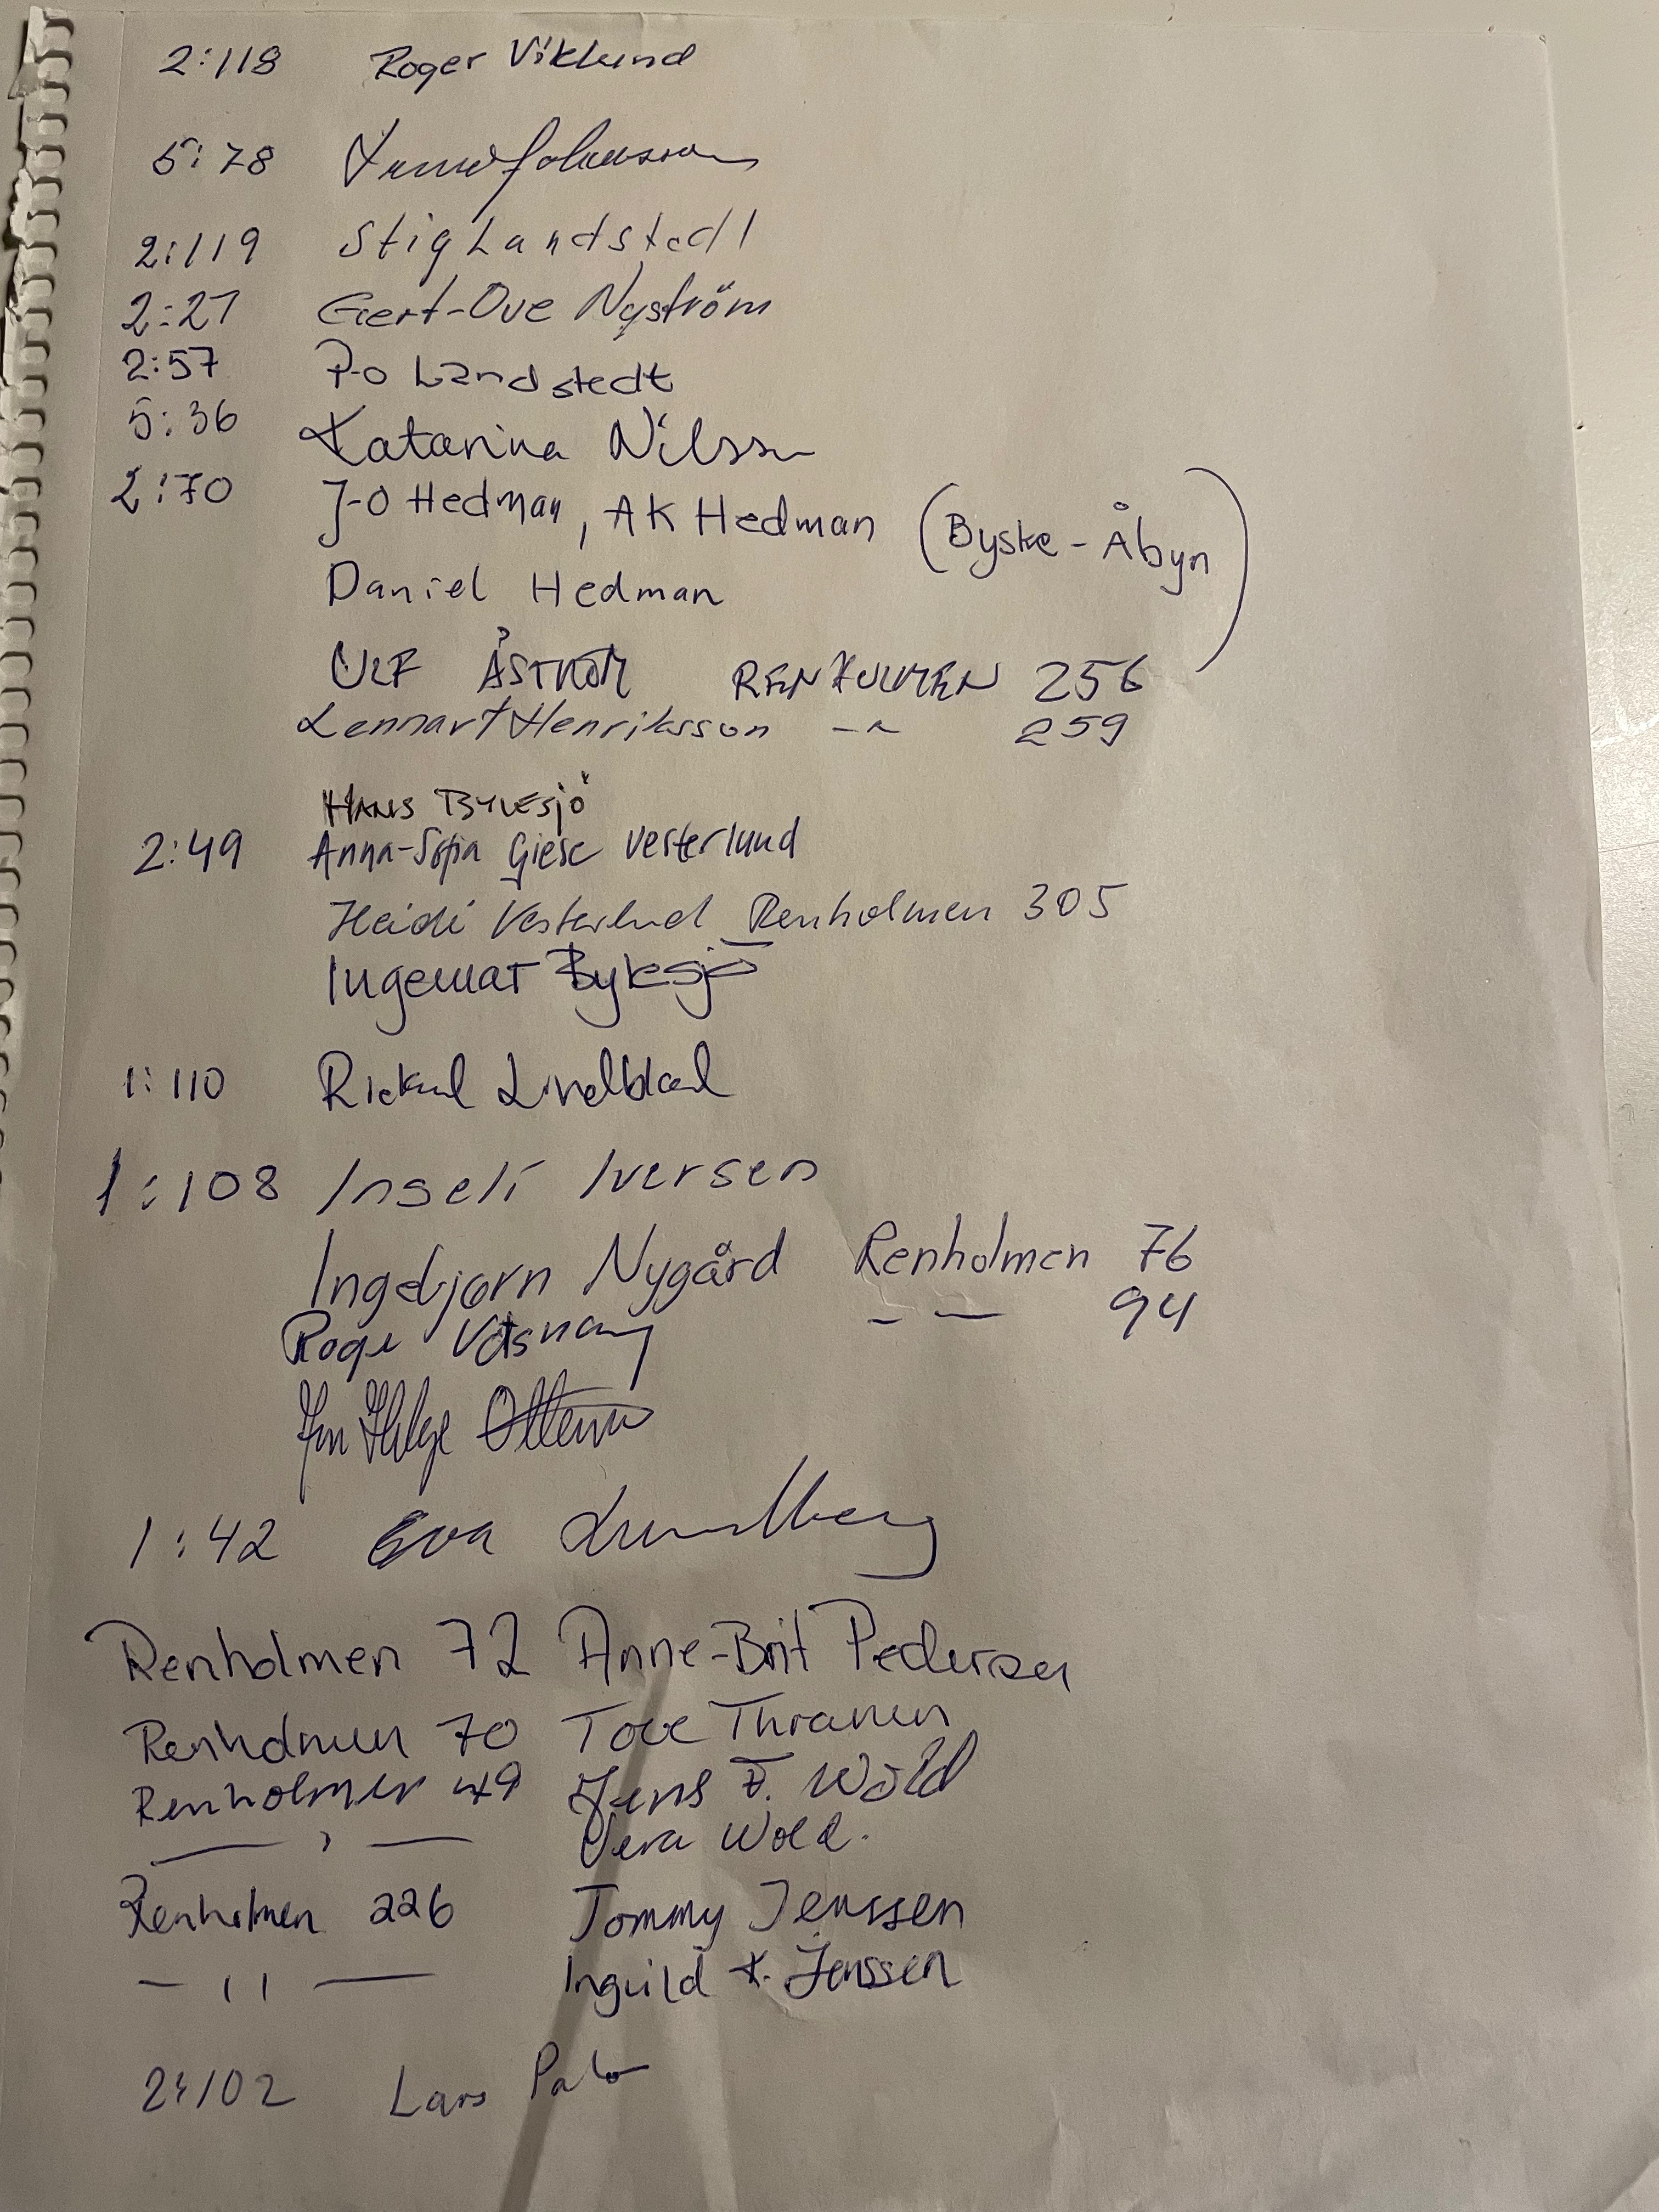 2:118 Roger Viklund
5:78 Johansson
2:119 Stig Landstedt
2:27 Gert-Ove Nyström
2:57 P-O Landstedt
5:36 Katarina Nilsson
2:70 J-O Hedman, AK Hedman (Byske-Åbyn)
Daniel Hedman
ULF ÅSTRÖM RENHOLMEN 256
Lennart Henriksson -"- 259
HANS BYLESJÖ
2:49 Anna-Sofia Giese Vesterlund
Heidi Vesterlund Renholmen 305
Ingemar Bylesjö
1:110 Rickard Lindblad
1:108 Inseli Iversen
Ingebjørn Nygård Renholmen 76
Roger — — 94
Ottem
1:42 Eva Lundberg
Renholmen 72 Anne-Brit Pedersen
Renholmen 70 Tove Thranen
Renholmen 49 Jens F. Wold
— " — Vera Wold.
Renholmen 226 Tommy Jenssen
— 11 — Ingvild K. Jenssen
2:102 Lars Palo